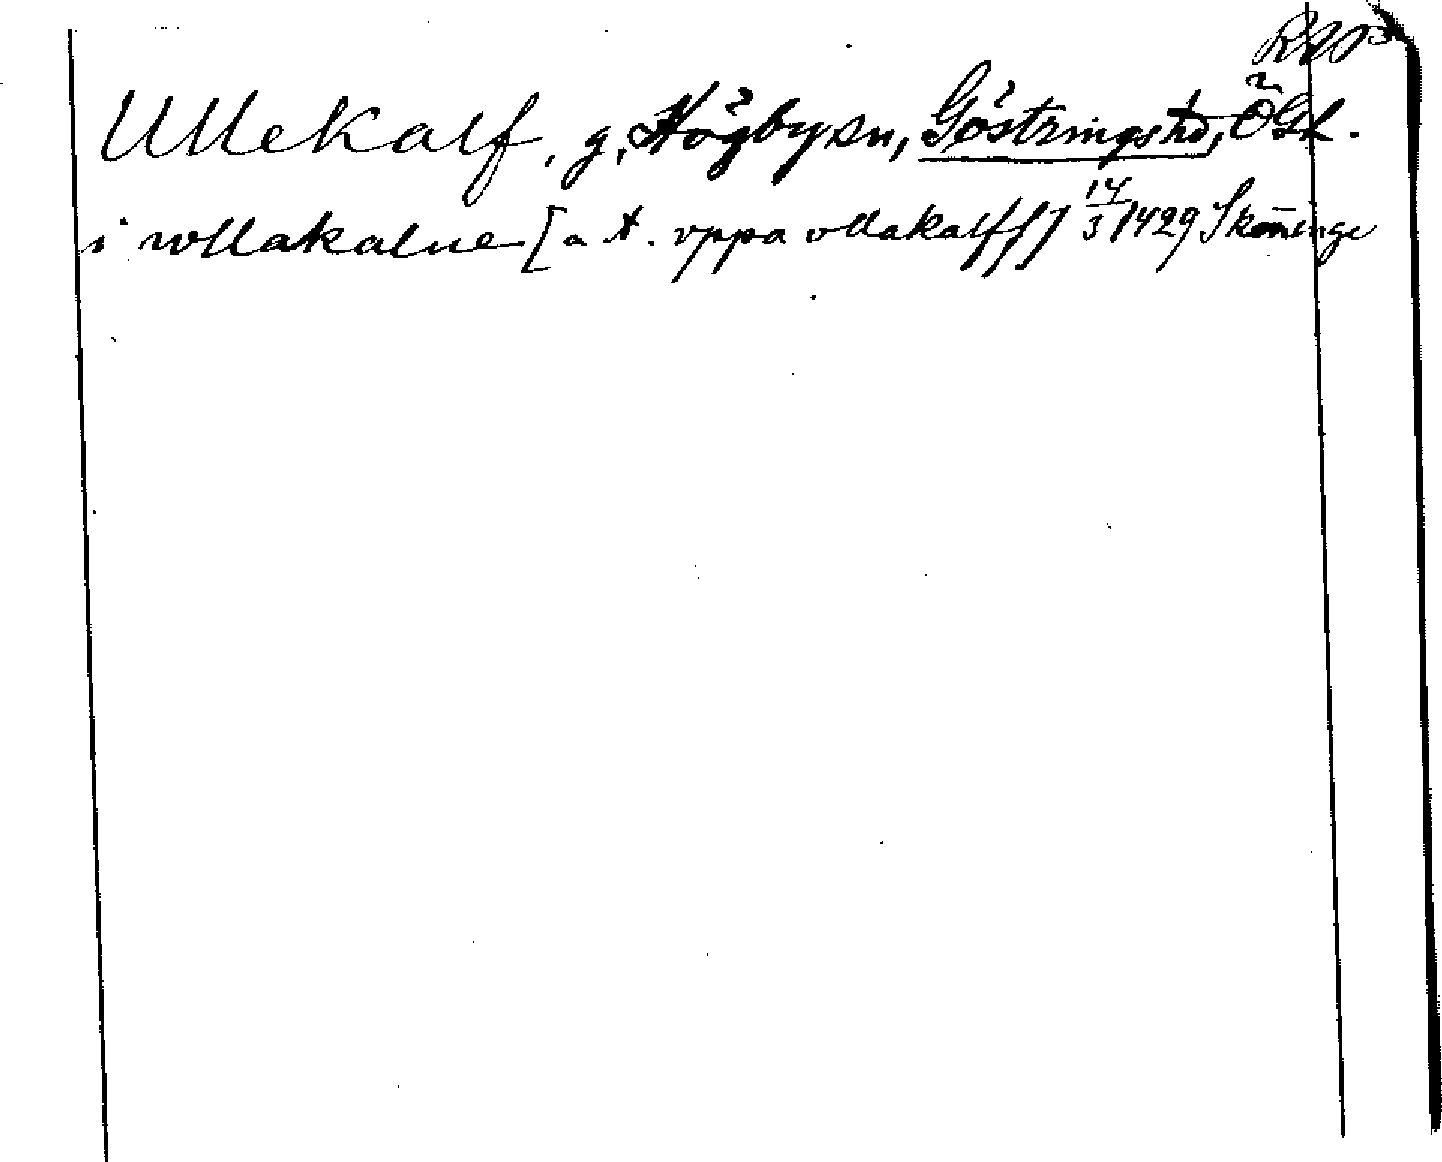 RAP
Ullekalf, g, Högby sn, Göstringshd, ÖGL.
i wllakalue [a t. vppa ullakalff] 17/3 1429 Skēninge